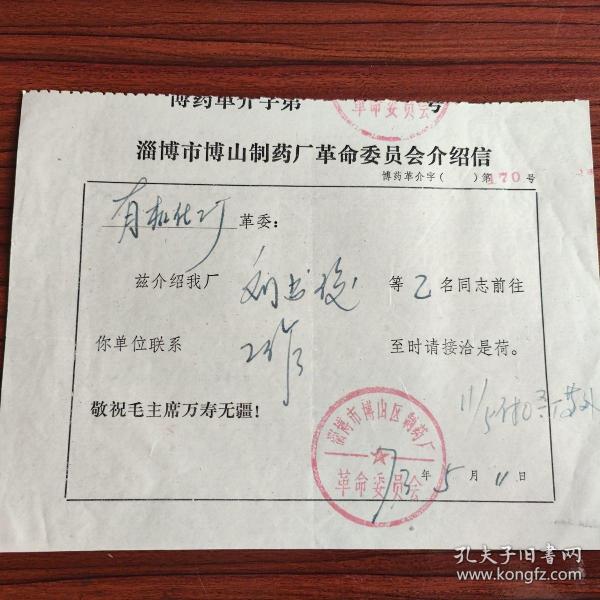 博药革介字第 号
革命委员会
淄博市博山制药厂革命委员会介绍信
博药革介字( )第170号
有机化工厂革委:
兹介绍我厂 刘书 等 乙 名同志前往
你单位联系 工作 至时请接洽是荷。
敬祝毛主席万寿无疆!
11/5
淄博市博山区制药厂
革命委员会
73年5月11日
孔夫子旧书网
www.kongfz.com